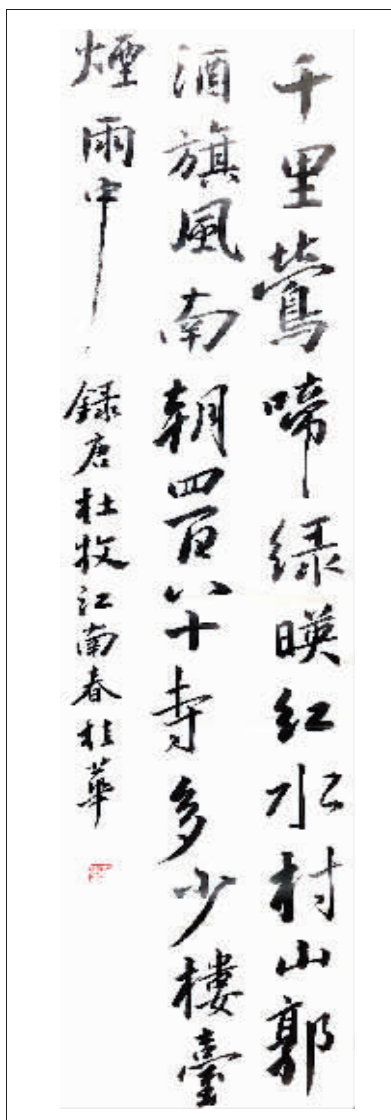 千里鶯啼緑暎紅水村山郭
酒旗風南朝四百八十寺多少樓臺
煙雨中
録唐杜牧江南春桂華